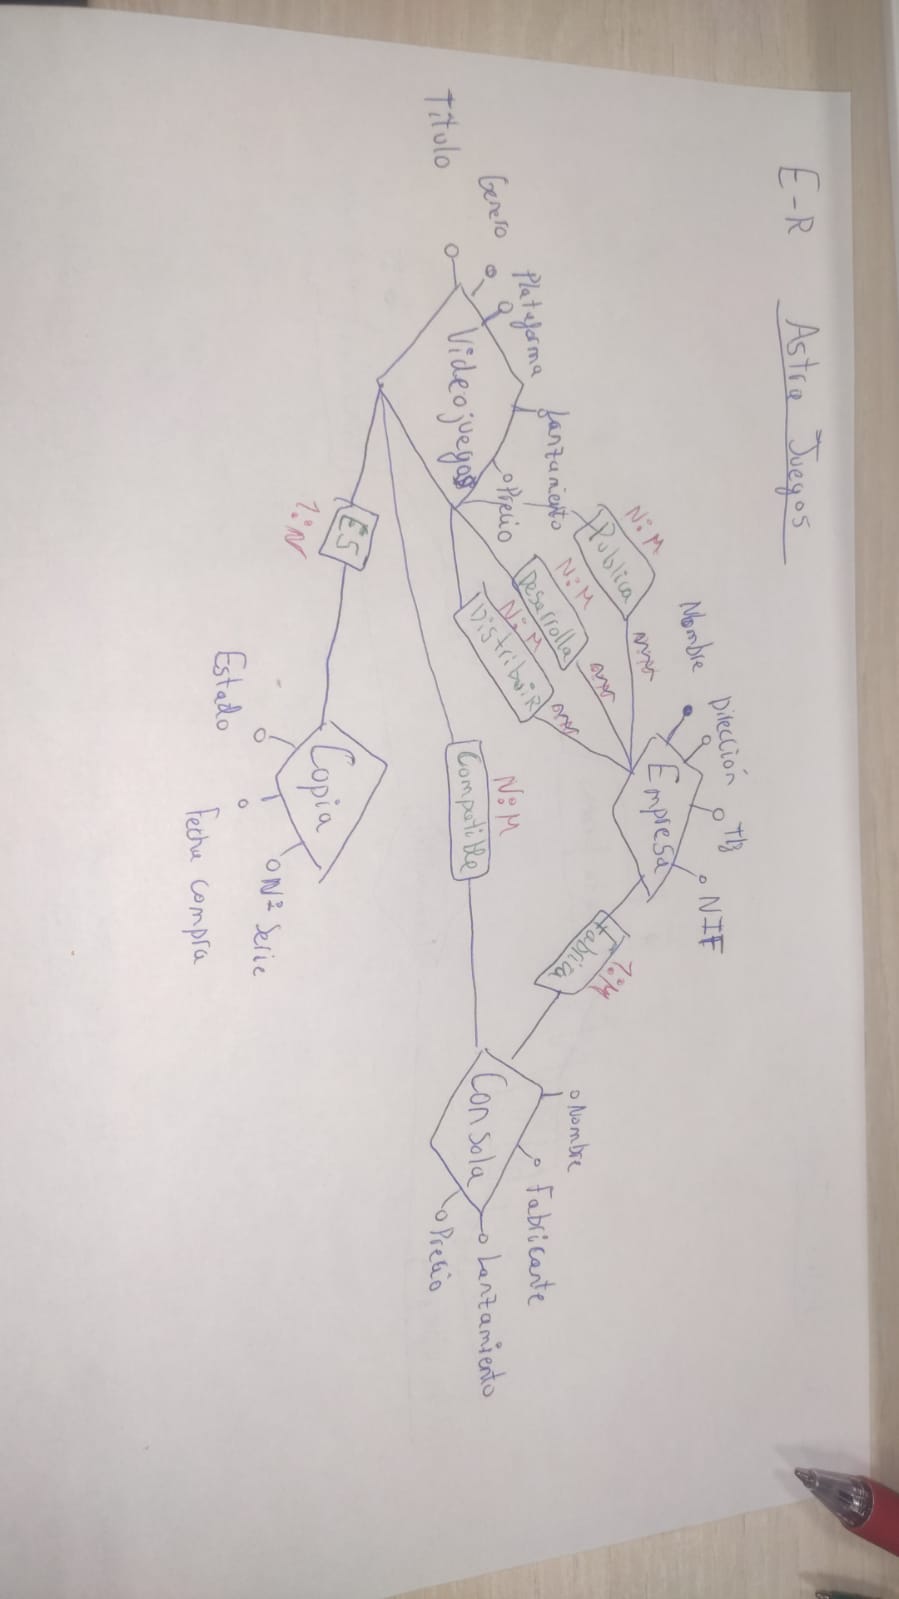 E-R Astra Juegos
Nombre
Dirección
Tlf
NIF
Empresa
N:M
Publica
N:M
Desarrolla
N:M
Distribuir
1:M
Fabrica
Titulo
Genero
Plataforma
Lanzamiento
Precio
Videojuegos
N:M
Compatible
Nombre
Fabricante
Lanzamiento
Precio
Consola
ES
1:N
Copia
Estado
Fecha compra
Nº Serie